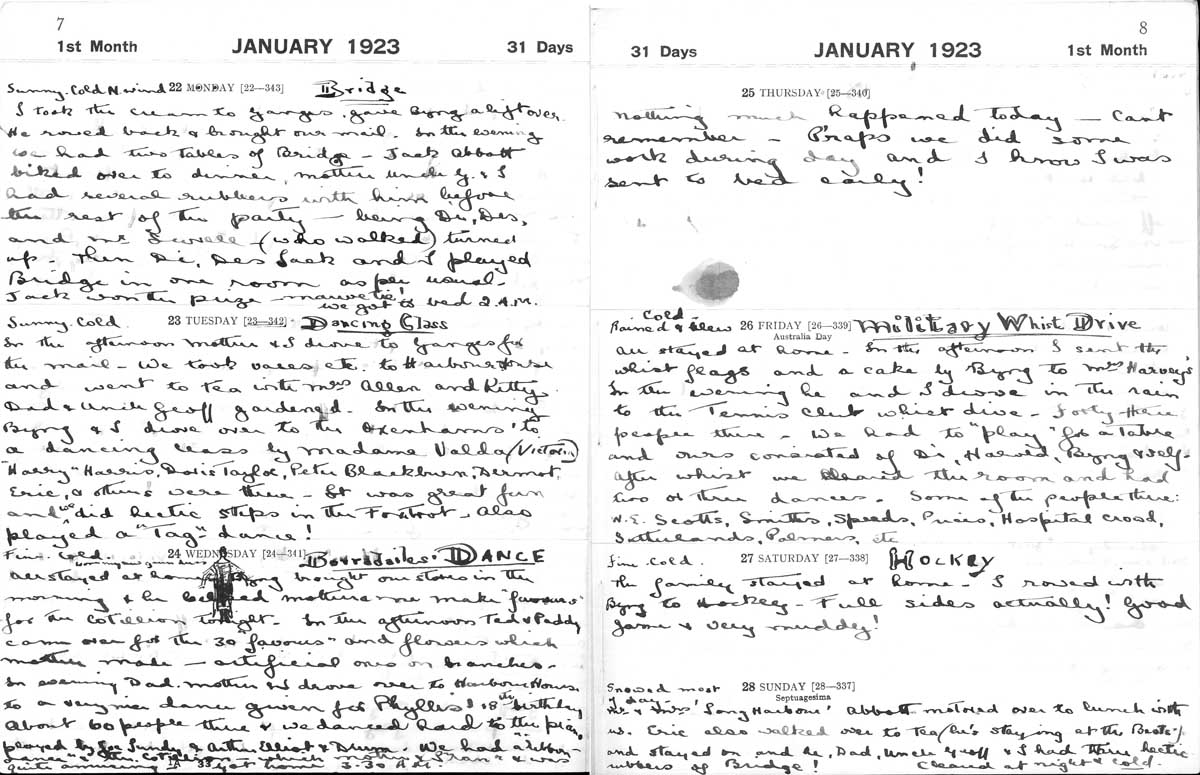 7
1st Month JANUARY 1923 31 Days
Sunny. Cold N. wind 22 MONDAY [22—343] Bridge
I took the cream to Ganges, gave Byng a lift over.
He rowed back & brought our mail. In the evening
we had two tables of Bridge – Jack Abbott
biked over to dinner, mother Uncle G. & I
had several rubbers with him before
the rest of the party – being Di, Des,
and Mr (who walked) turned
up. Then Di, Des Jack and I played
Bridge in one room as per usual.
Jack won the prize – mauve tie!
we got to bed 2 A.M.
Sunny. Cold. 23 TUESDAY [23—342] Dancing Class
In the afternoon mother & I drove to Ganges for
the mail – We took vases etc. to Harbour House
and went to tea with Mrs Allen and Kitty.
Dad & Uncle Geoff gardened. In the evening
Byng & I drove over to the Oxenhams' to
a dancing class by Madame Valda (Victoria)
"Harry" Harris, Doris Taylor, Peter Blackburn, Dermot,
Eric, & others were there – It was great fun
and we did hectic steps in the Foxtrot – Also
played a "Tag" dance!
Fine. Cold. 24 WEDNESDAY [24—341] DANCE
All stayed at home Byng brought our stores in the
morning & he helped mother & me make "favours"
for the cotillion tonight. In the afternoon Ted & Paddy
came over for the 30 "favours" and flowers which
mother made – artificial ones on branches.
In evening Dad, mother & I drove over to Harbour House
to a very nice dance given for Phyllis' 18th birthday
About 60 people there & we danced hard to the piano,
played by & Arthur Elliot & Drum. We had a ribbon
dance & which mother "ran" & was
quite amusing got home 3.30 A.M.
8
31 Days JANUARY 1923 1st Month
25 THURSDAY [25—340]
Nothing much happened today – Cant
remember – P'raps we did some
work during day and I know I was
sent to bed early!
Cold
Rained & blew 26 FRIDAY [26—339] Military Whist Drive
Australia Day
All stayed at home – In the afternoon I sent the
whist flags and a cake by Byng to Mrs Harvey's
In the evening he and I drove in the rain
to the Tennis Club whist drive – Forty there
people there – We had to "play" for a table
and ours consisted of Di, Harold, Byng & self.
After whist we cleared the room and had
two or three dances. Some of the people there:
N.E. Scotts, Smiths, Speeds, Prices, Hospital crowd,
Sutherlands, Palmers, etc
Fine. Cold. 27 SATURDAY [27—338] HOCKEY
The family stayed at home – I rowed with
Byng to Hockey – Full sides actually! Good
game & very muddy!
Snowed most 28 SUNDAY [28—337]
of day Septuagesima
Mr & Mrs 'Long Harbour' Abbott motored over to lunch with
us. Eric also walked over to tea (he's staying at the
and stayed on and he, Dad, Uncle Geoff & I had three hectic
rubbers of Bridge! Cleared at night & cold.